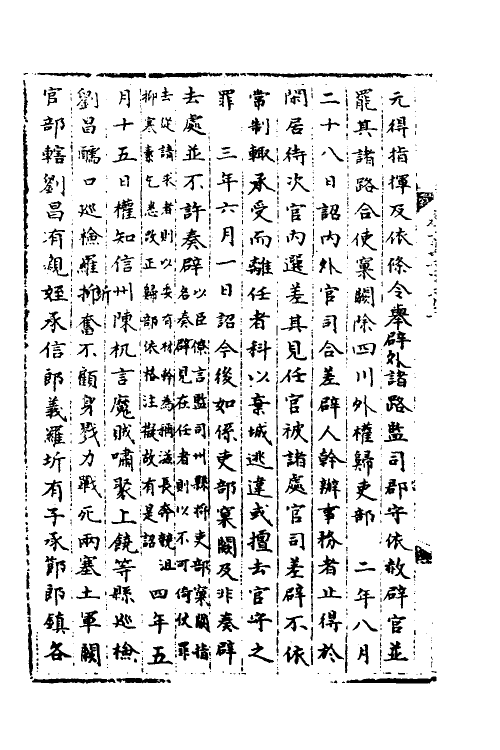 元得指揮及依條令舉辟外諸路監司郡守依故辟官並
罷其諸路合使窠闕除四川外權歸吏部　二年八月
二十八日詔內外官司合差辟人幹辦事務者止得於
閑居待次官內選差其見任官被諸處官司差辟不依
常制輒承受而離任者科以棄城逃違或擅去官守之
罪　三年六月一日詔今後如係吏部窠闕及非奏辟
去處並不許奏辟以臣僚言監司州縣將吏部窠闕指名奏辟見在任者則以不可倚仗罪
去從請求者則以委有材幹為稱滋長奔競沮抑寒素乞悉改正歸部依格注擬故有是詔　四年五
月十五日權知信州陳杌言魔賊嘯聚上饒等縣巡檢
劉昌醹口巡檢羅圻奮不顧身戮力戰死兩寨土軍闕
官部轄劉昌有親姪承信郎義羅圻有子承節郎鎮各